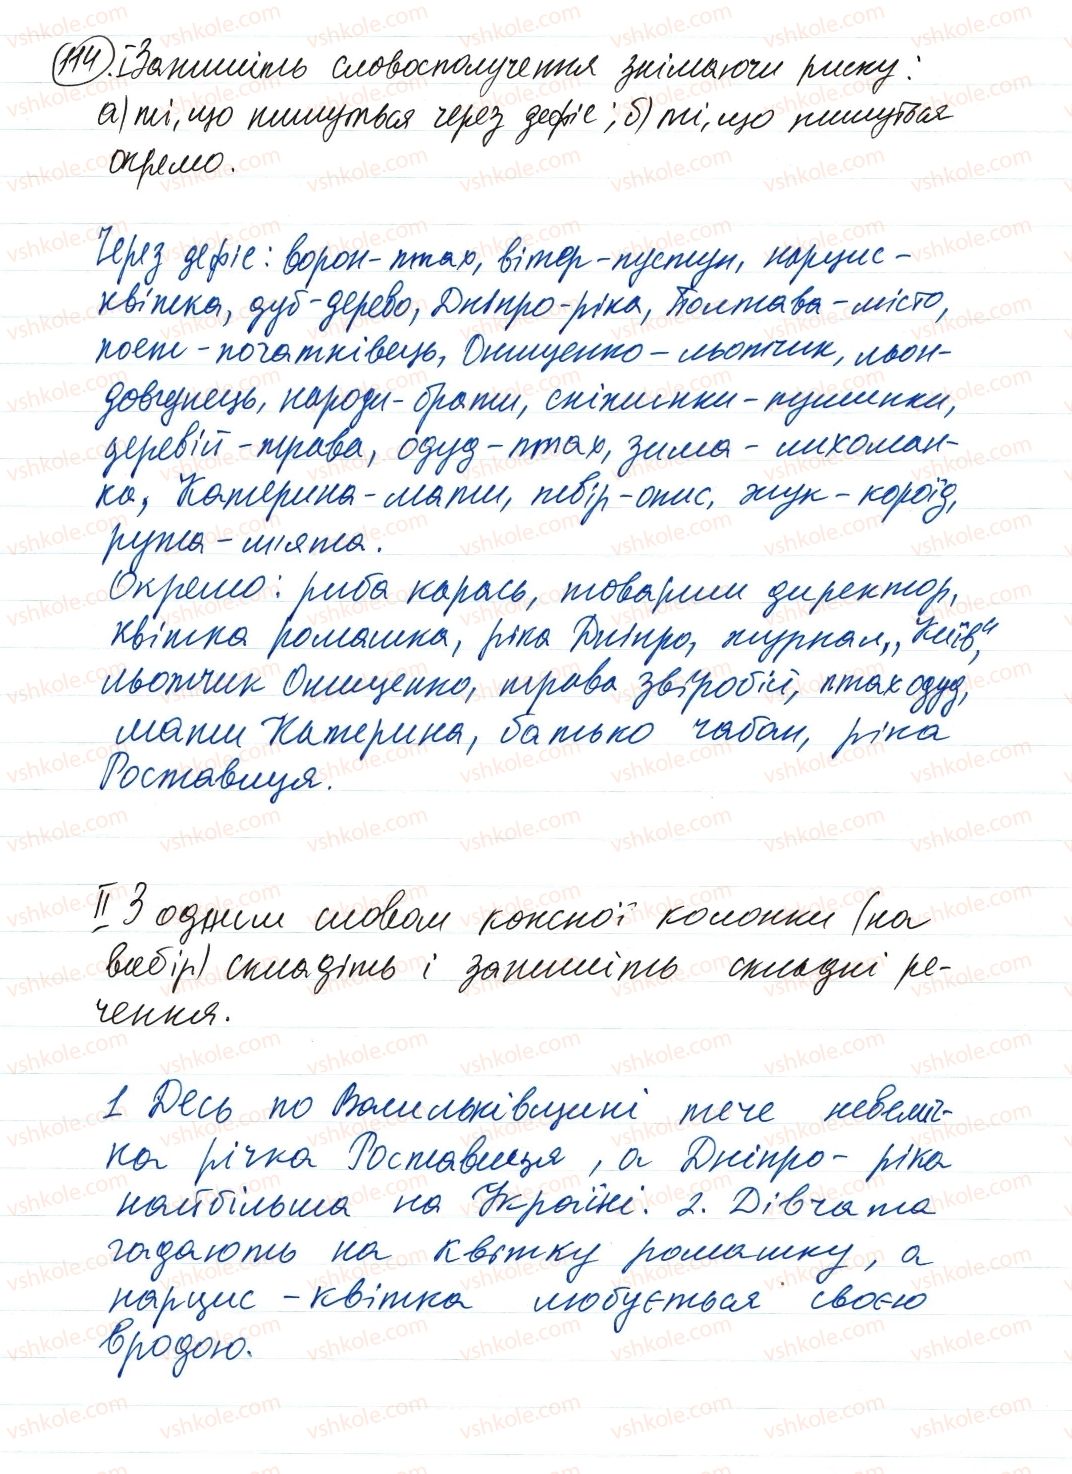 114. І Запишіть словосполучення знімаючи риску:
а) ті, що пишуться через дефіс; б) ті, що пишуться
окремо.
Через дефіс: ворон-птах, вітер-пустун, нарцис-
квітка, дуб-дерево, Дніпро-ріка, Полтава-місто,
поет-початківець, Онищенко-льотчик, льон-
довгунець, народи-брати, сніжинки-пушинки,
деревій-трава, одуд-птах, зима-лихоман-
ка, Катерина-мати, твір-опис, жук-короїд,
рута-мʼята.
Окремо: риба карась, товариш директор,
квітка ромашка, ріка Дніпро, журнал „Київ“,
льотчик Онищенко, трава звіробій, птах одуд,
мати Катерина, батько чабан, ріка
Роставиця.
ІІ З одним словом кожної колонки (на
вибір) складіть і запишіть складні ре-
чення.
1 Десь по Васильківщині тече невели-
ка річка Роставиця, а Дніпро-ріка
найбільша на Україні. 2. Дівчата
гадають на квітку ромашку, а
нарцис-квітка любується своєю
вродою.